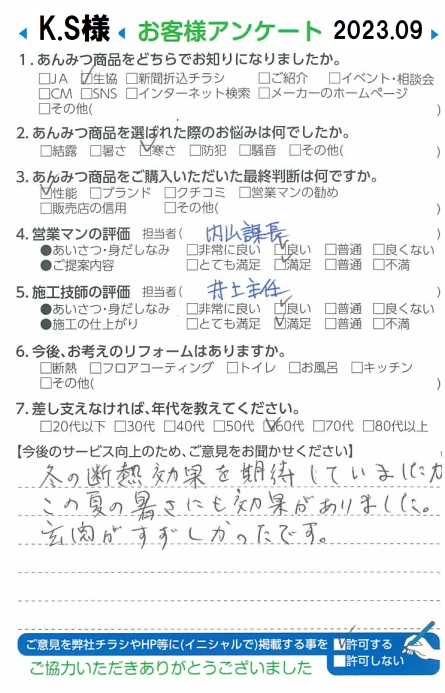 K.S様 お客様アンケート 2023.09
1.あんみつ商品をどちらでお知りになりましたか。
□JA ☑生協 □新聞折込チラシ □ご紹介 □イベント・相談会
□CM □SNS □インターネット検索 □メーカーのホームページ
□その他(
2.あんみつ商品を選ばれた際のお悩みは何でしたか。
□結露 □暑さ ☑寒さ □防犯 □騒音 □その他( )
3.あんみつ商品をご購入いただいた最終判断は何ですか。
☑性能 □ブランド □クチコミ □営業マンの勧め
□販売店の信用 □その他( )
4.営業マンの評価 担当者( 内山課長 )
●あいさつ・身だしなみ □非常に良い ☑良い □普通 □良くない
●ご提案内容 □とても満足 ☑満足 □普通 □不満
5.施工技師の評価 担当者( 井上主任 )
●あいさつ・身だしなみ □非常に良い ☑良い □普通 □良くない
●施工の仕上がり □とても満足 ☑満足 □普通 □不満
6.今後、お考えのリフォームはありますか。
□断熱 □フロアコーティング □トイレ □お風呂 □キッチン
□その他(
7.差し支えなければ、年代を教えてください。
□20代以下 □30代 □40代 □50代 ☑60代 □70代 □80代以上
【今後のサービス向上のため、ご意見をお聞かせください】
冬の断熱効果を期待していましたが
この夏の暑さにも効果がありました。
玄関がすずしかったです。
ご意見を弊社チラシやHP等に(イニシャルで)掲載する事を ☑許可する
□許可しない
ご協力いただきありがとうございました